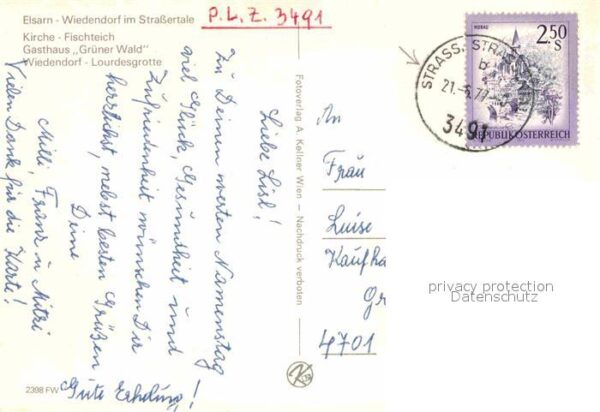 Elsarn - Wiedendorf im Straßertale
Kirche - Fischteich
Gasthaus „Grüner Wald"
Wiedendorf - Lourdesgrotte
P.L.Z. 3491
Liebe Lisl!
Zu Deinem werten Namenstag
viel Glück, Gesundheit und
Zufriedenheit wünschen Dir
herzlichst, nebst besten Grüßen
Deine
Milli, Franz u Mitzi
Vielen Dank für die Karte!
Gute Erholung!
2398 FW
Fotoverlag A. Kellner Wien – Nachdruck verboten
An
Frau
Luise
Kaufha
Gr
4701
MURAU
2,50
S
REPUBLIK ÖSTERREICH
STRASS, STRA
b
21.-6.77
3491
privacy protection
Datenschutz